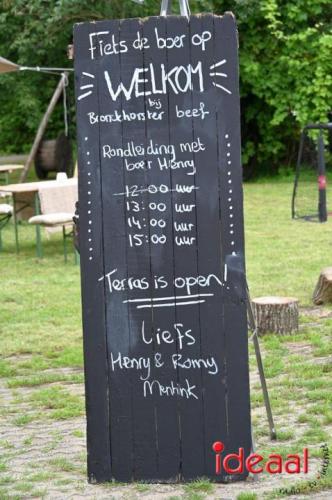 Fiets de boer op
WELKOM
bij
Bronckhorster beef
Rondleiding met
boer Henry
12:00 uur
13:00 uur
14:00 uur
15:00 uur
Terras is open!
Liefs
Henry & Romy
Menkink
ideaal.
radio - tv - internet